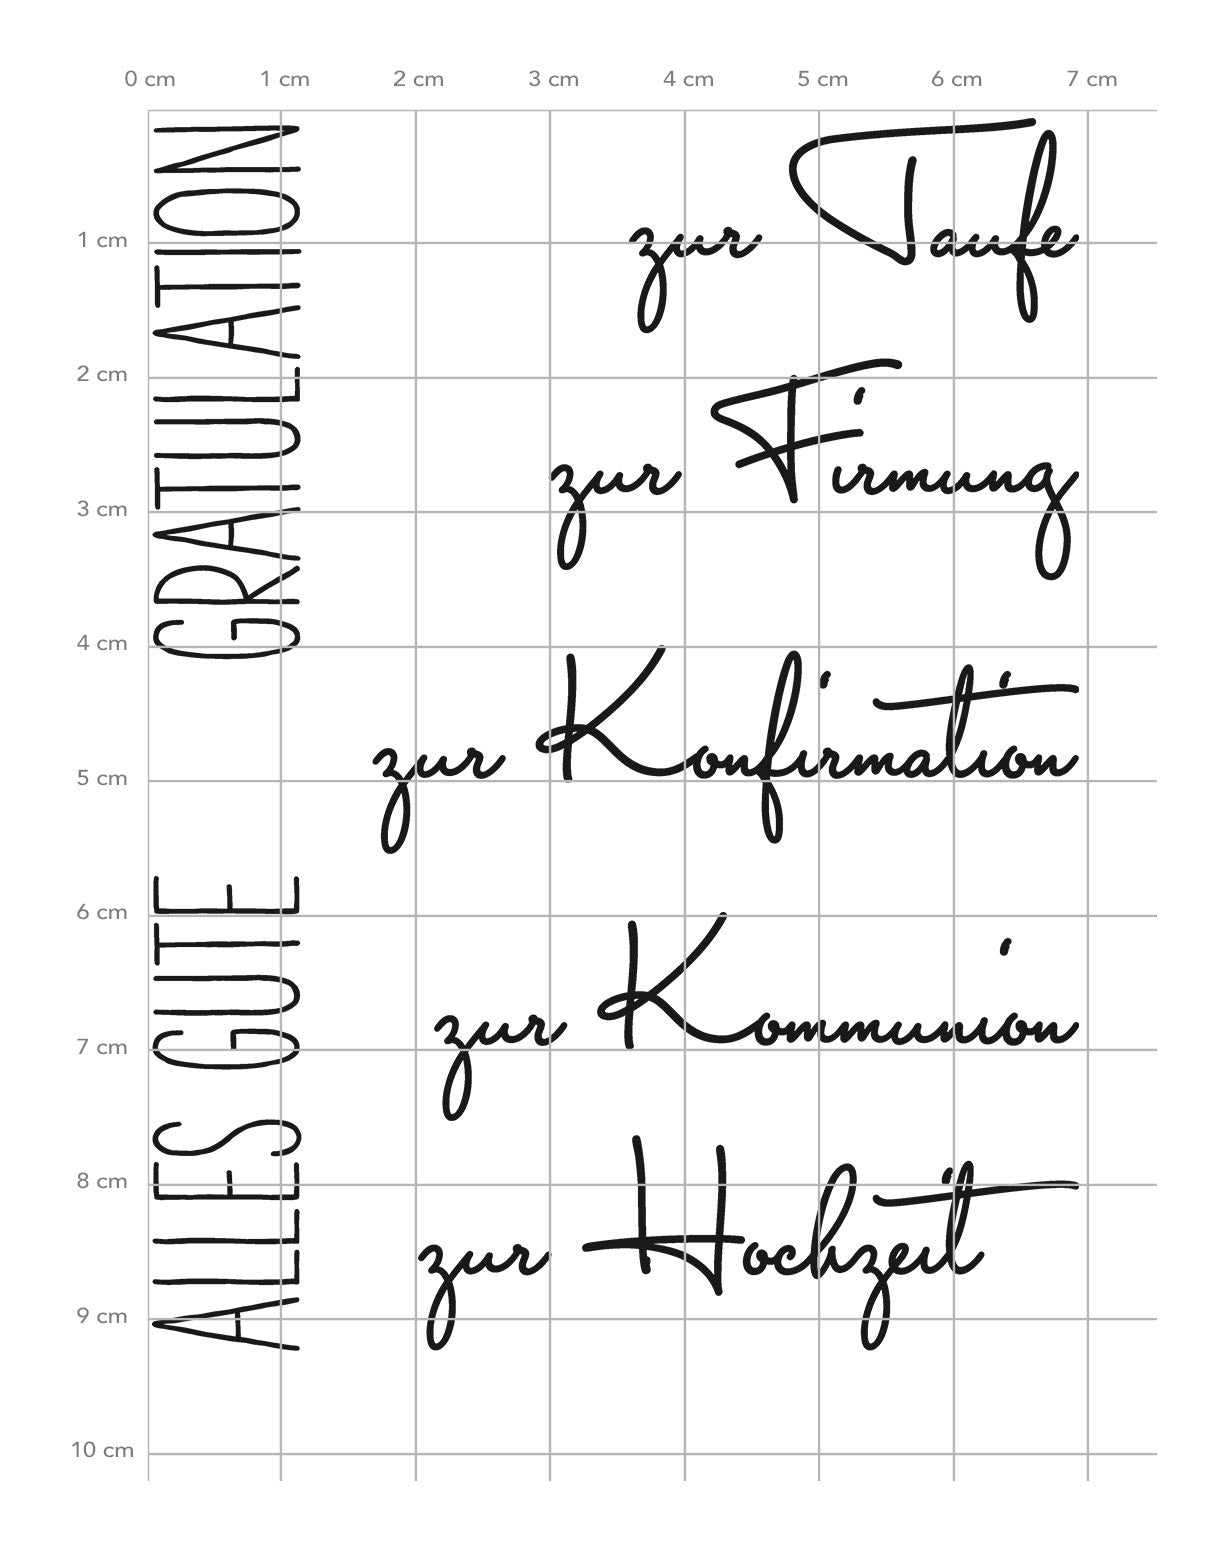 0 cm 1 cm 2 cm 3 cm 4 cm 5 cm 6 cm 7 cm
1 cm
2 cm
3 cm
4 cm
5 cm
6 cm
7 cm
8 cm
9 cm
10 cm
GRATULATION
ALLES GUTE
zur Taufe
zur Firmung
zur Konfirmation
zur Kommunion
zur Hochzeit